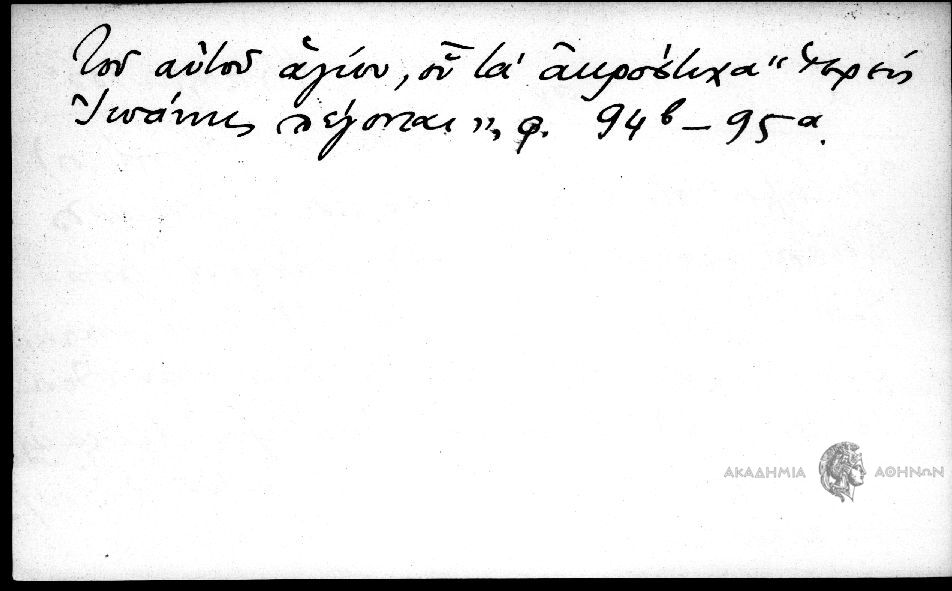 Τοῦ αὐτοῦ ἁγίου, οὗ τὰ ἀκρόστιχα "
Ἰωάννης λέγονται", φ. 94β – 95α.
ΑΚΑΔΗΜΙΑ ΑΘΗΝΩΝ